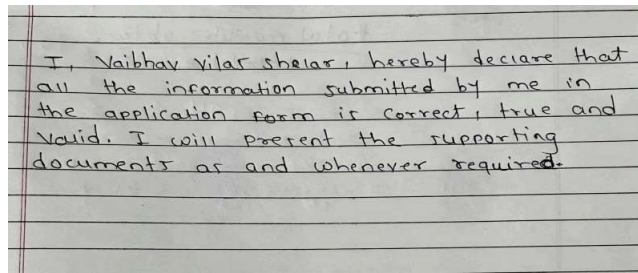 I, Vaibhav Vilas Shelar, hereby declare that
all the information submitted by me in
the application form is correct, true and
valid. I will present the supporting
documents as and whenever required.